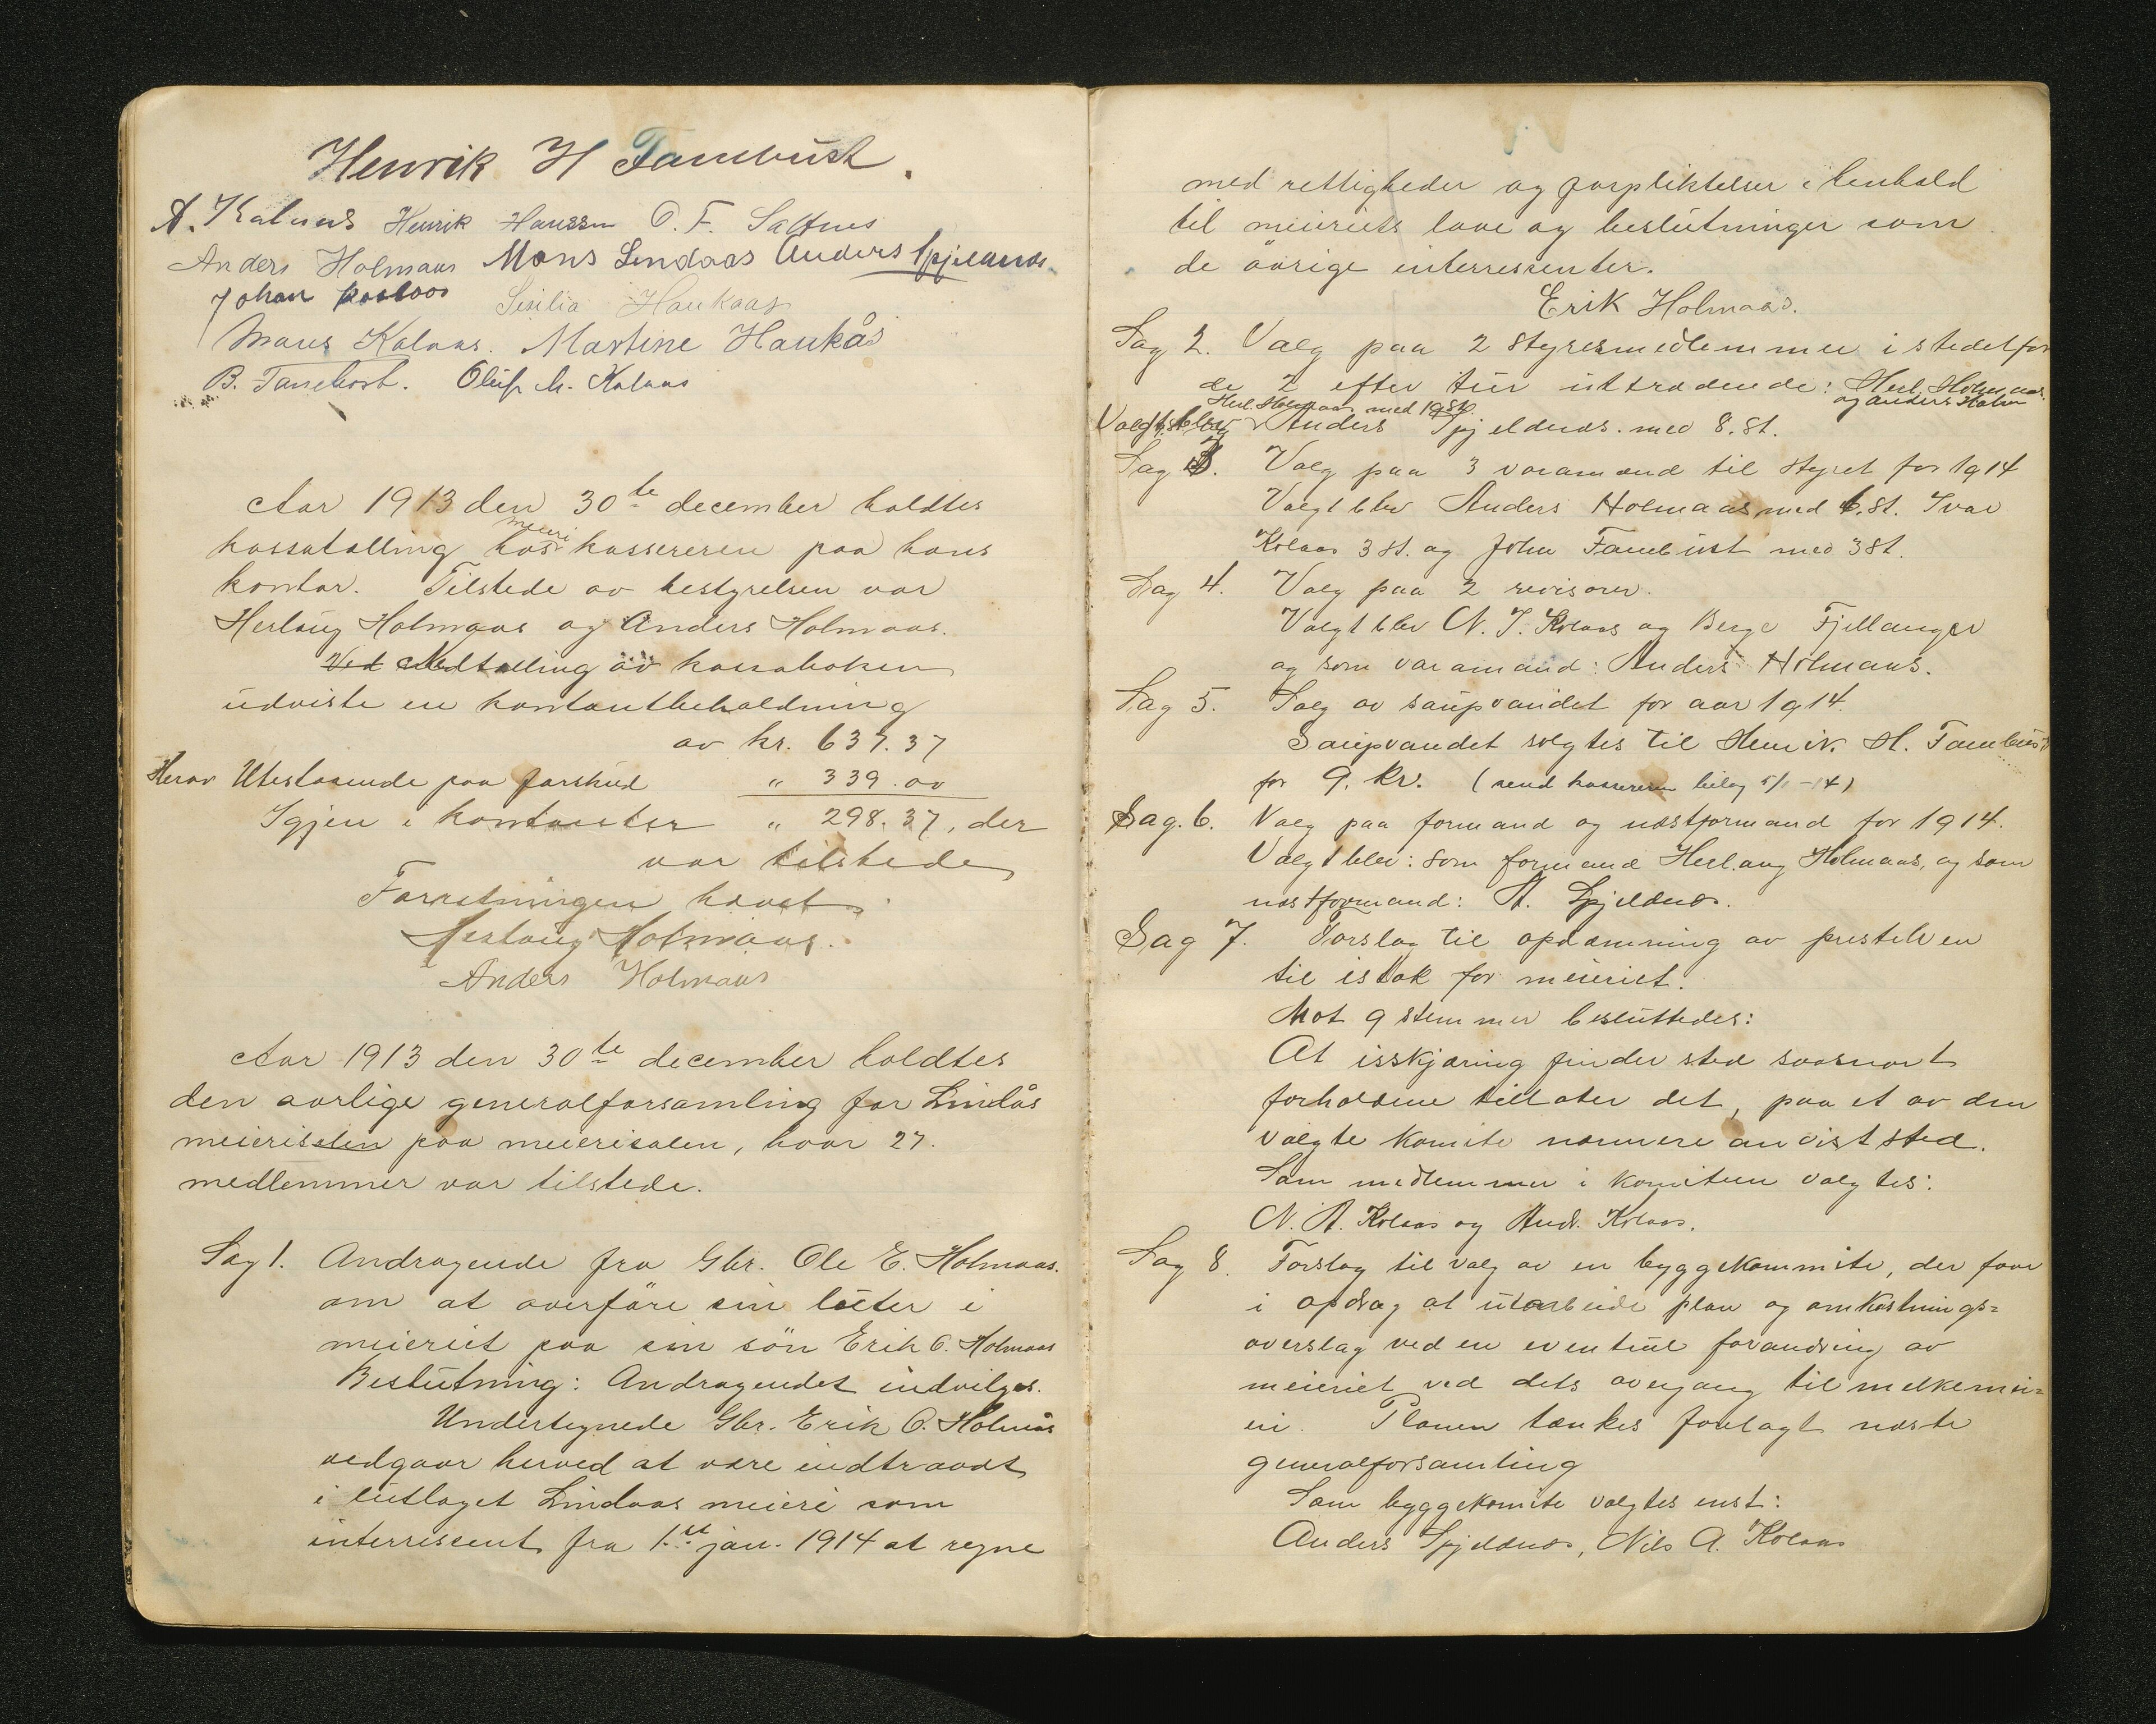 Henrik H Fanebust.
A. Kolaas Henrik Hanssen O. F. Saltnes
Anders Holmaas Mons Lindaas Anders Spjeldnæs
Johan Kaalaas Sesilia Haukaas
Mons Kolaas. Martine Haukås
B. Fanebost. Oluf M. Kolaas
Aar 1913 den 30te december holdtes
kassatælling hos meieri kassereren paa hans
kontor. Tilstede av bestyrelsen var
Herlaug Holmaas og Anders Holmaas.
Ved Nedtælling av kassaboken
udviste en kontantbeholdning
av kr. 637.37
Herav Utestaaende paa forskud " 339.00
Igjen i kontanter " 298.37, der
var tilstede
Forretningen hævet.
Herlaug Holmaas.
Anders Holmaas
Aar 1913 den 30te december holdtes
den aarlige generalforsamling for Lindås
meieri paa meierisalen, hvor 27.
medlemmer var tilstede.
Sag 1. Andragende fra Gbr. Ole E. Holmaas.
om at overføre sin luter i
meieriet paa sin søn Erik O. Holmaas
Beslutning: Andragendet indvilges.
Undertegnede Gbr. Erik O. Holmås
vedgaar herved at være indtraadt
i lutlaget Lindaas meieri som
interressent fra 1ste jan. 1914 at regne
med rettigheder og forpliktelser i henhold
til meieriets love og beslutninger som
de övrige interressenter.
Erik Holmaas.
Sag 2. Valg paa 2 styresmedlemmer istedetfor
de 2 efter tur uttrædende: Herl. Holmaas.
og Anders Holm
Herl. Holmaas med 19 St.
Valgt blev Anders Spjeldnæs. med 8. St.
Sag 3. Valg paa 3 varamænd til styret for 1914
Valgt blev Anders Holmaas med 6. St. Ivar
Kolaas 3 St. og John Fanebust med 3 St.
Sag 4. Valg paa 2 revisorer.
Valgt blev N. J. Kolaas og Berge Fjellanger
og som varamand: Anders Holmaas.
Sag 5. Salg av saupvandet for aar 1914.
Saupvandet solgtes til Henrik H. Fanebust
for 9. Kr. (send kassereren bilag 5/1-14)
Sag. 6. Valg paa formand og næstformand for 1914.
Valgt blev: som formand Herlaug Holmaas, og som
næstformand: A. Spjeldnæs.
Sag 7. Forslag til opdæmning av prestelven
til istak for meieriet.
Mot 9 stemmer besluttedes:
At isskjæring finder sted saasnart
forholdene tillater det, paa et av den
valgte komite nærmere anvist sted.
Som medlemmer i komiteen valgtes:
N. A. Kolaas og Andr. Kolaas.
Sag 8. Forslag til valg av en byggekommite, der faar
i opdrag at utarbeide plan og omkostnings=
overslag ved en eventuel forandring av
meieriet ved dets overgang til melkemei=
eri. Planen tænkes forelagt næste
generalforsamling
Som byggekomite valgtes enst:
Anders Spjeldnæs, Nils A. Kolaas